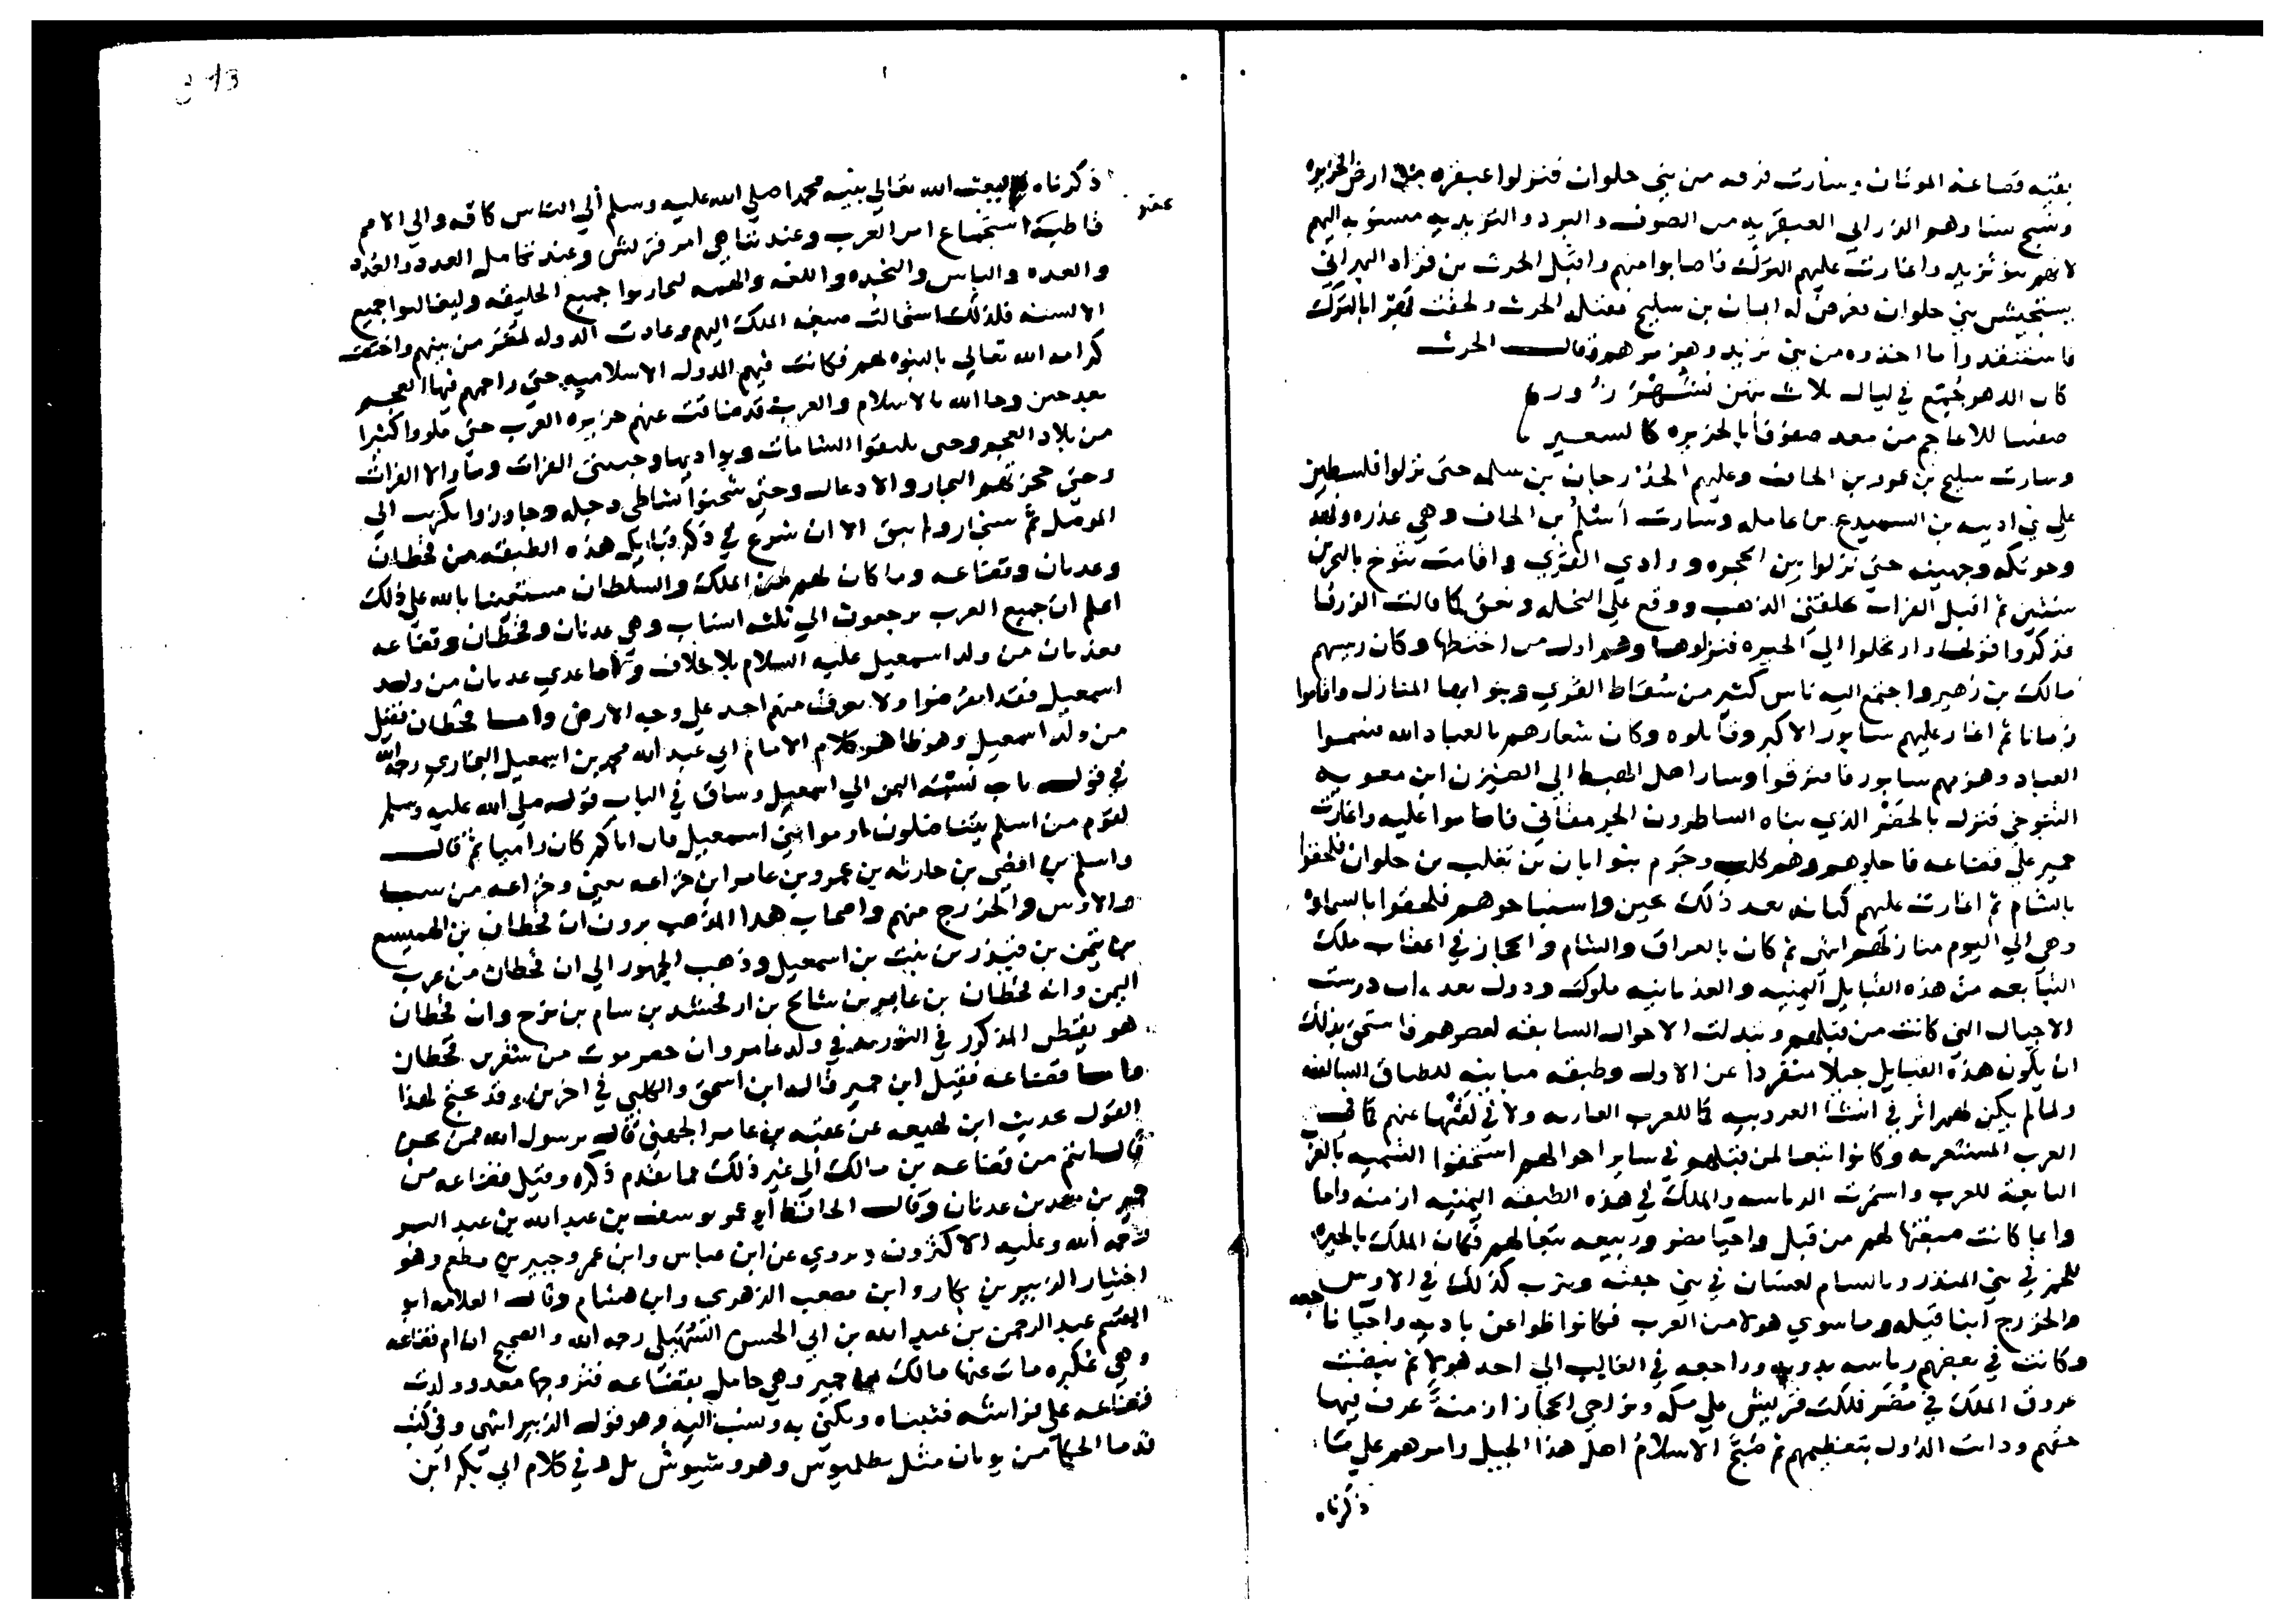 بقيه قضاعه الموثان وسارت فرقه من بني حلوان فنزلوا عبقره من ارض الجزيره
ونسج نساوهم الزرابي العبقريه من الصوف والبرود التزيديه منسوبه اليهم
لانهم بنو تزيد واغارت عليهم الترك فاصابوا منهم واقبل الحرث بن قراد البهراني
يستجيش بني حلوان فعرض له اباغ بن سليح فقتله الحرث ولحقت بهرا بالترك
فاستنقذوا ما اخذوه من بني تزيد وهزموهم وقال الحرث
كان الدهر جمع في ليال ثلاث بتهن بشهرزور
صففنا للاعاجم من معد صفوفا بالجزيره كالسعير
وسارت سليح بن عمرو بن الحاف وعليهم الحدرجان بن سلمه حتى نزلوا فلسطين
علي بني ادينه بن السميدع من عامله وسارت اسلم بن الحاف وهي عذره ونهد
وحوتكه وجهينه حتى نزلوا بين الحجر ووادي القري واقامت تنوخ بالبحرين
سنتين ثم اقبل الغراب بحلقتي الذهب ووقع علي النخله ونعق كما قالت الزرقا
فذكروا قولها وارتحلوا الي الحيره فنزلوها وهم اول من اختطها وكان رييسهم
مالك بن زهير واجتمع اليه ناس كثير من سقاط القري وبنوا بها المنازل واقاموا
زمانا ثم اغار عليهم سابور الاكبر وقاتلوه وكان شعارهم يا لعباد الله فسموا
العباد وهزمهم سابور فافترقوا وسار اهل المهبط الي الضيزن ابن معويه
التنوخي فنزل بالحضر الذي بناه الساطرون الجرمقاني فاقاموا عليه واغارت
حمير علي قضاعه فاجلوهم وهم كلب وجرم بنو ابان بن تغلب بن حلوان فلحقوا
بالشام ثم اغارت عليهم كنانه بعد ذلك بحين واستباحوهم فلحقوا بالسماوه
وهي الي اليوم منازلهم انتهى ثم كان بالعراق والشام والحجاز في اعقاب ملك
التبابعه من هذه القبايل اليمنيه والعدنانيه ملوك ودول بعد ان درست
الاجيال التي كانت من قبلهم وتبدلت الاحوال السابقه لعصرهم فاستحق بذلك
ان يكون هذه القبايل جيلا منفردا عن الاول وطبقه مباينه للطباق السالفه
ولما لم يكن لهم اثر في انشا العروبيه كما للعرب العاربه ولا في لغتها عنهم كما في
العرب المستعربه وكانوا تبعا لمن قبلهم في ساير احوالهم استحقوا التسميه بالعرب
التابعه للعرب واستمرت الرياسه والملك في هذه الطبقه اليمنيه ازمنه واما
وانما كانت صبغتها لهم من قبل واحيا مضر وربيعه تبعا لهم فكان الملك بالحيره
للخم في بني المنذر وبالشام لغسان في بني جفنه ويثرب كذلك في الاوس
والخزرج ابنا قيله وما سوي هولا من العرب فكانوا ظواعن باديه واحيانا جعه
وكانت في بعضهم رياسه بدويه وراجعه في الغالب الي احد هولا ثم نبضت
عروق الملك في مضر فملكت قريش علي مكه ونواحي الحجاز ازمنة عرف فيها
حقهم ودانت الدول بتعظيمهم ثم صبح الاسلام اهل هذا الجيل وامرهم علي ما
ذكرناه
ذكرناه لبعث الله تعالي نبيه محمدا صلي الله عليه وسلم الي الناس كافه والي الامم
عند
قاطبة استجماع امر العرب وعند تناهي امر قريش وعند تكامل العدد والعُدد
والعده والباس والنجده واللغه والهمه ليحاربوا جميع الخليقه وليغالبوا جميع
الالسنه فلذلك استحالت صبغه الملك اليهم وعادت الدوله لمضر من بينهم واختصت
كرامه الله تعالي بالنبوه لهم فكانت فيهم الدول الاسلاميه حتي زاحمهم فيها العجم
بعد حين وجا الله بالاسلام والعرب قد ضاقت عنهم جزيره العرب حتي ملووا كثيرا
من بلاد العجم وحتى بلغوا الشامات وبواديها وجنبتي الفرات وما والا الفرات
وحتي حجزتهم البحار والادغال وحتي شحنوا شاطي دجله وجاوزوا تكريت الي
الموصل ثم سنجار ولم يبق الا ان نشرع في ذكر قبايل هذه الطبقه من قحطان
وعدنان وقضاعه وما كان لهم من الملك والسلطان مستعينا بالله علي ذلك
اعلم ان جميع العرب يرجعون الي ثلثه انساب وهي عدنان وقحطان وقضاعه
فعدنان من ولد اسمعيل عليه السلام بلا خلاف واما عدي عدنان من ولد
اسمعيل فقد انقرضوا ولا يعرف منهم احد علي وجه الارض واما قحطان فقيل
من ولد اسمعيل وهو ظاهر كلام الامام ابي عبد الله محمد بن اسمعيل البخاري رحمه الله
في قوله باب نسبة اليمن الي اسمعيل وساق في الباب قوله صلي الله عليه وسلم
لقوم من اسلم يتناضلون ارموا بني اسمعيل فان اباكم كان راميا ثم قال
واسلم بن افصى بن حارثه بن عمرو بن عامر ابن خزاعه يعني وخزاعه من سبا
والاوس والخزرج منهم واصحاب هذا المذهب يرون ان قحطان بن الهميسع
بن يتمن بن قيذر بن نبت بن اسمعيل وذهب الجمهور الي ان قحطان من عرب
اليمن وانه قحطان بن عابر بن شالح بن ارفخشد بن سام بن نوح وان قحطان
هو يقطن المذكور في التوريه في ولد عامر وان حضرموت من شعوب قحطان
واما قضاعه فقيل ابن حمير قاله ابن اسحق والكلبي في اخرين وقد يحتج لهذا
القول حديث ابن لهيعه عن عقبه بن عامر الجهني قال يا رسول الله ممن نحن
قال انتم من قضاعه بن مالك الي غير ذلك مما تقدم ذكره وقيل قضاعه من
حمير بن معد بن عدنان وقال الحافظ ابو عمر يوسف بن عبد الله بن عبد البر
رحمه الله وعليه الاكثرون ويروي عن ابن عباس وابن عمر وجبير بن مطعم وهو
اختيار الزبير بن بكار وابن مصعب الزهري وابن هشام وقال العلامه ابو
القسم عبد الرحمن بن عبد الله بن ابي الحسن السهيلي رحمه الله والصحيح ان ام قضاعه
وهي عكبره مات عنها مالك بن حمير وهي حامل بقضاعه فتزوجها معد وولدت
قضاعه علي فراشه فتبناه وتكني به ونسب اليه وهو قول الزبير انتهي وفي كتب
قدما الحكما من يونان مثل بطلميوس وهروشيوش بل وفي كلام ابي بكر ابن